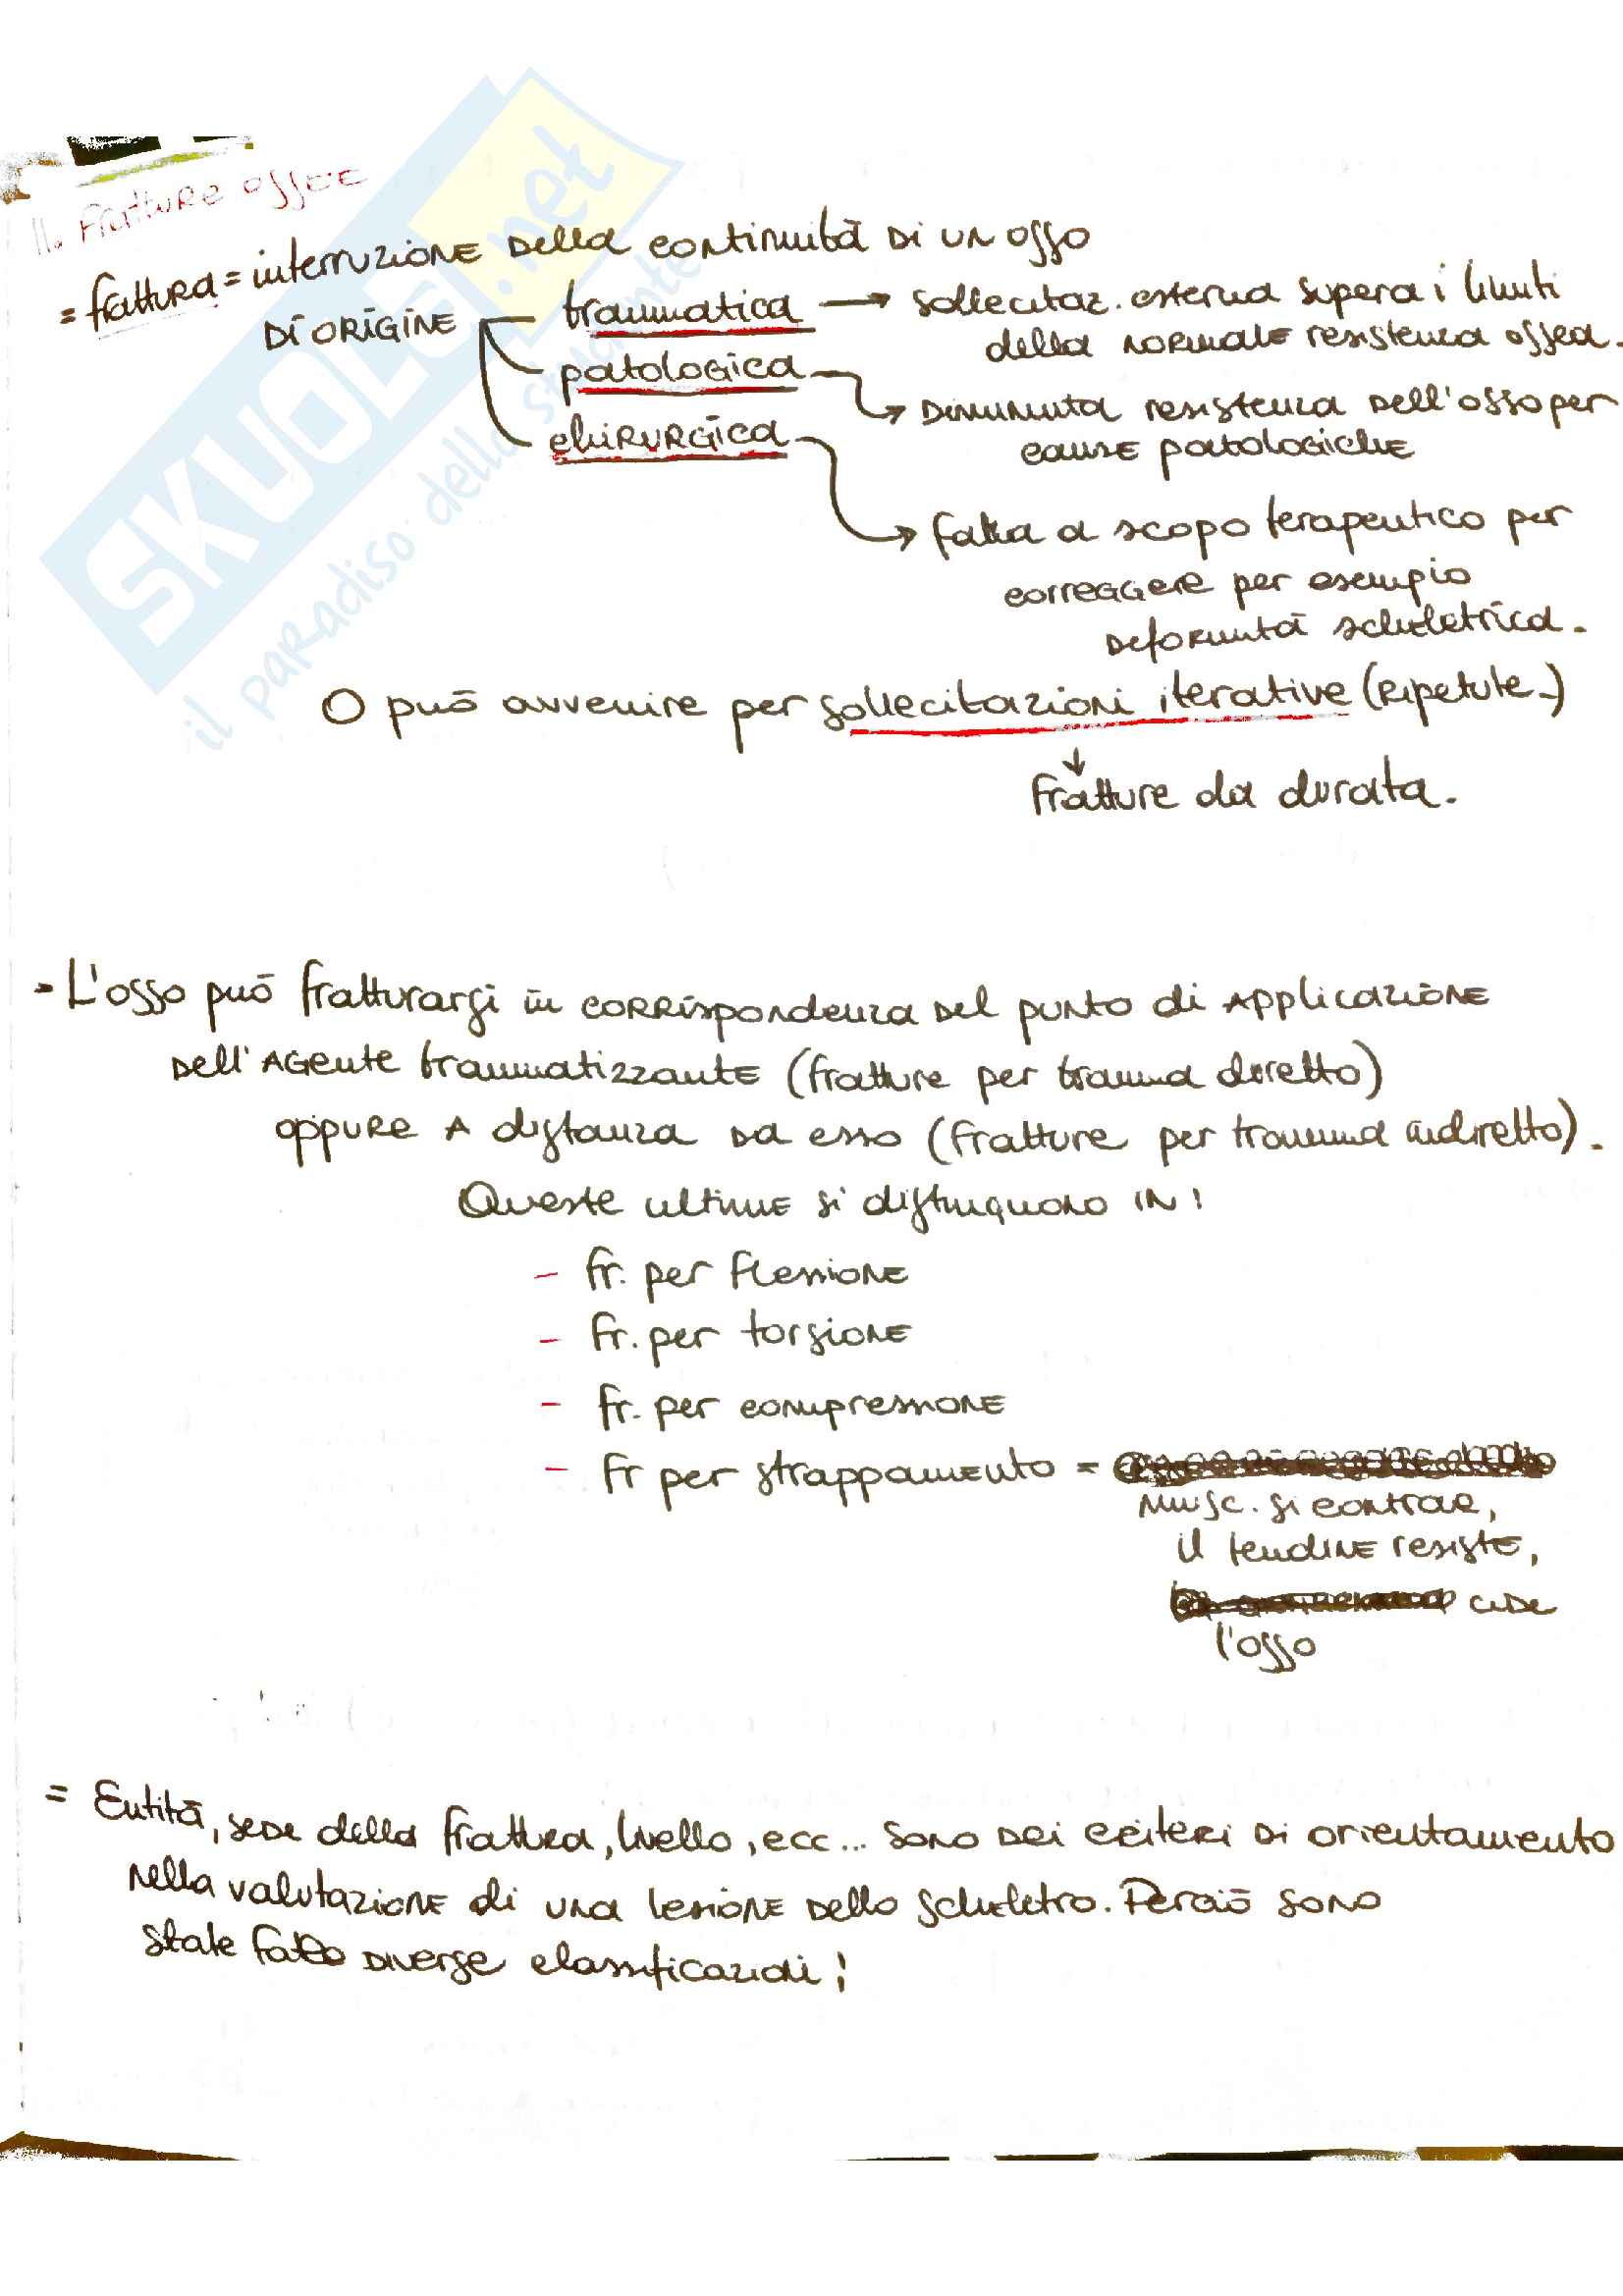 11. Fratture ossee
= frattura = interruzione della continuità di un osso
DI ORIGINE
traumatica → sollecitaz. esterna supera i limiti
della normale resistenza ossea.
patologica → Diminuita resistenza dell'osso per
cause patologiche
chirurgica → fatta a scopo terapeutico per
correggere per esempio
deformità scheletrica.
O può avvenire per sollecitazioni iterative (ripetute.)
↓
Fratture da durata.
- L'osso può fratturarsi in corrispondenza del punto di applicazione
dell'agente traumatizzante (fratture per trauma diretto)
oppure a distanza da esso (fratture per trauma indiretto).
Queste ultime si distinguono in:
- fr. per flessione
- fr. per torsione
- fr. per compressione
- fr per strappamento =
musc. si contrae,
il tendine resiste,
cede
l'osso
= Entità, sede della frattura, livello, ecc... sono dei criteri di orientamento
nella valutazione di una lesione dello scheletro. Perciò sono
state fatte diverse classificazioni:
SKUOLA.net
il paradiso dello studente